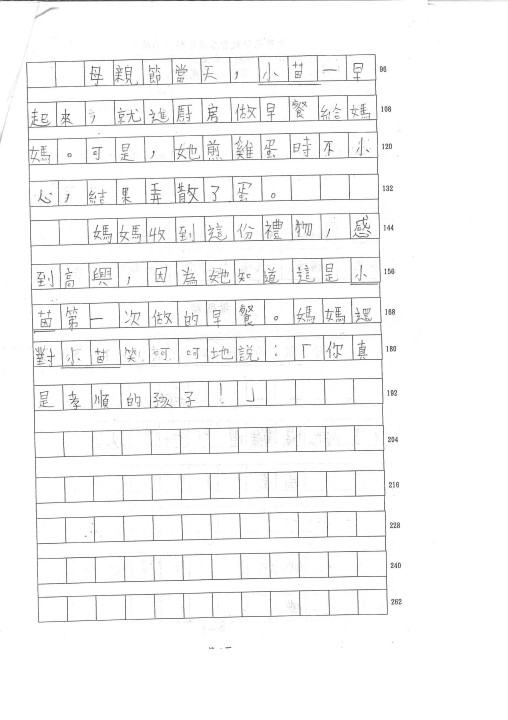 母親節當天，小苗一早 96
起來，就進廚房做早餐給媽 108
媽。可是，她煎雞蛋時不小 120
心，結果弄散了蛋。 132
媽媽收到這份禮物，感 144
到高興，因為她知道這是小 156
苗第一次做的早餐。媽媽還 168
對小苗笑呵呵地說：「你真 180
是孝順的孩子！」 192
204
216
228
240
262